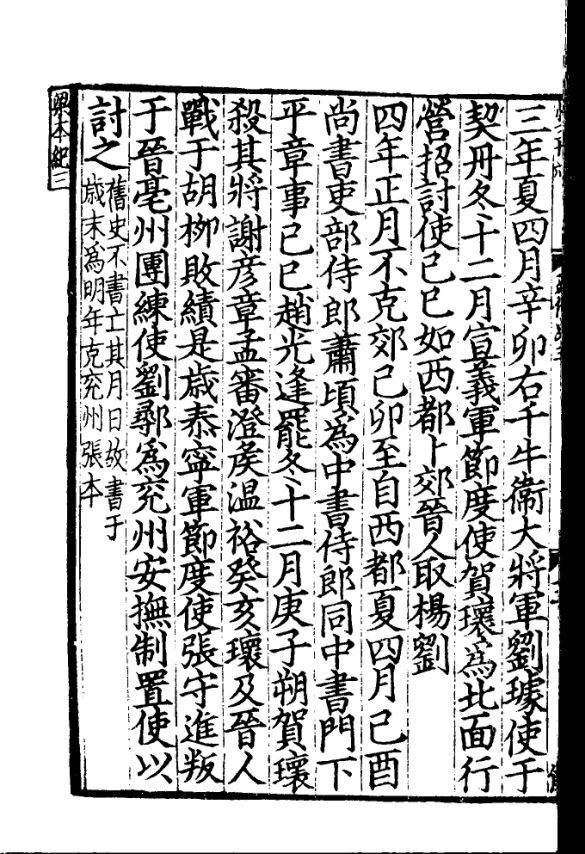 三年夏四月辛卯右千牛衞大將軍劉璩使于
契丹冬十二月宣義軍節度使賀瓌爲北面行
營招討使己巳如西都卜郊晉人取楊劉
四年正月不克郊己卯至自西都夏四月己酉
尚書吏部侍郎蕭頃爲中書侍郎同中書門下
平章事己巳趙光逢罷冬十二月庚子朔賀瓌
殺其將謝彦章孟審澄矦温裕癸亥瓌及晉人
戰于胡栁敗績是歳泰寧軍節度使張守進叛
于晉亳州團練使劉鄩爲兖州安撫制置使以
討之
舊史不書亡其月日故書于
歳末爲明年克兖州張本
梁本紀三